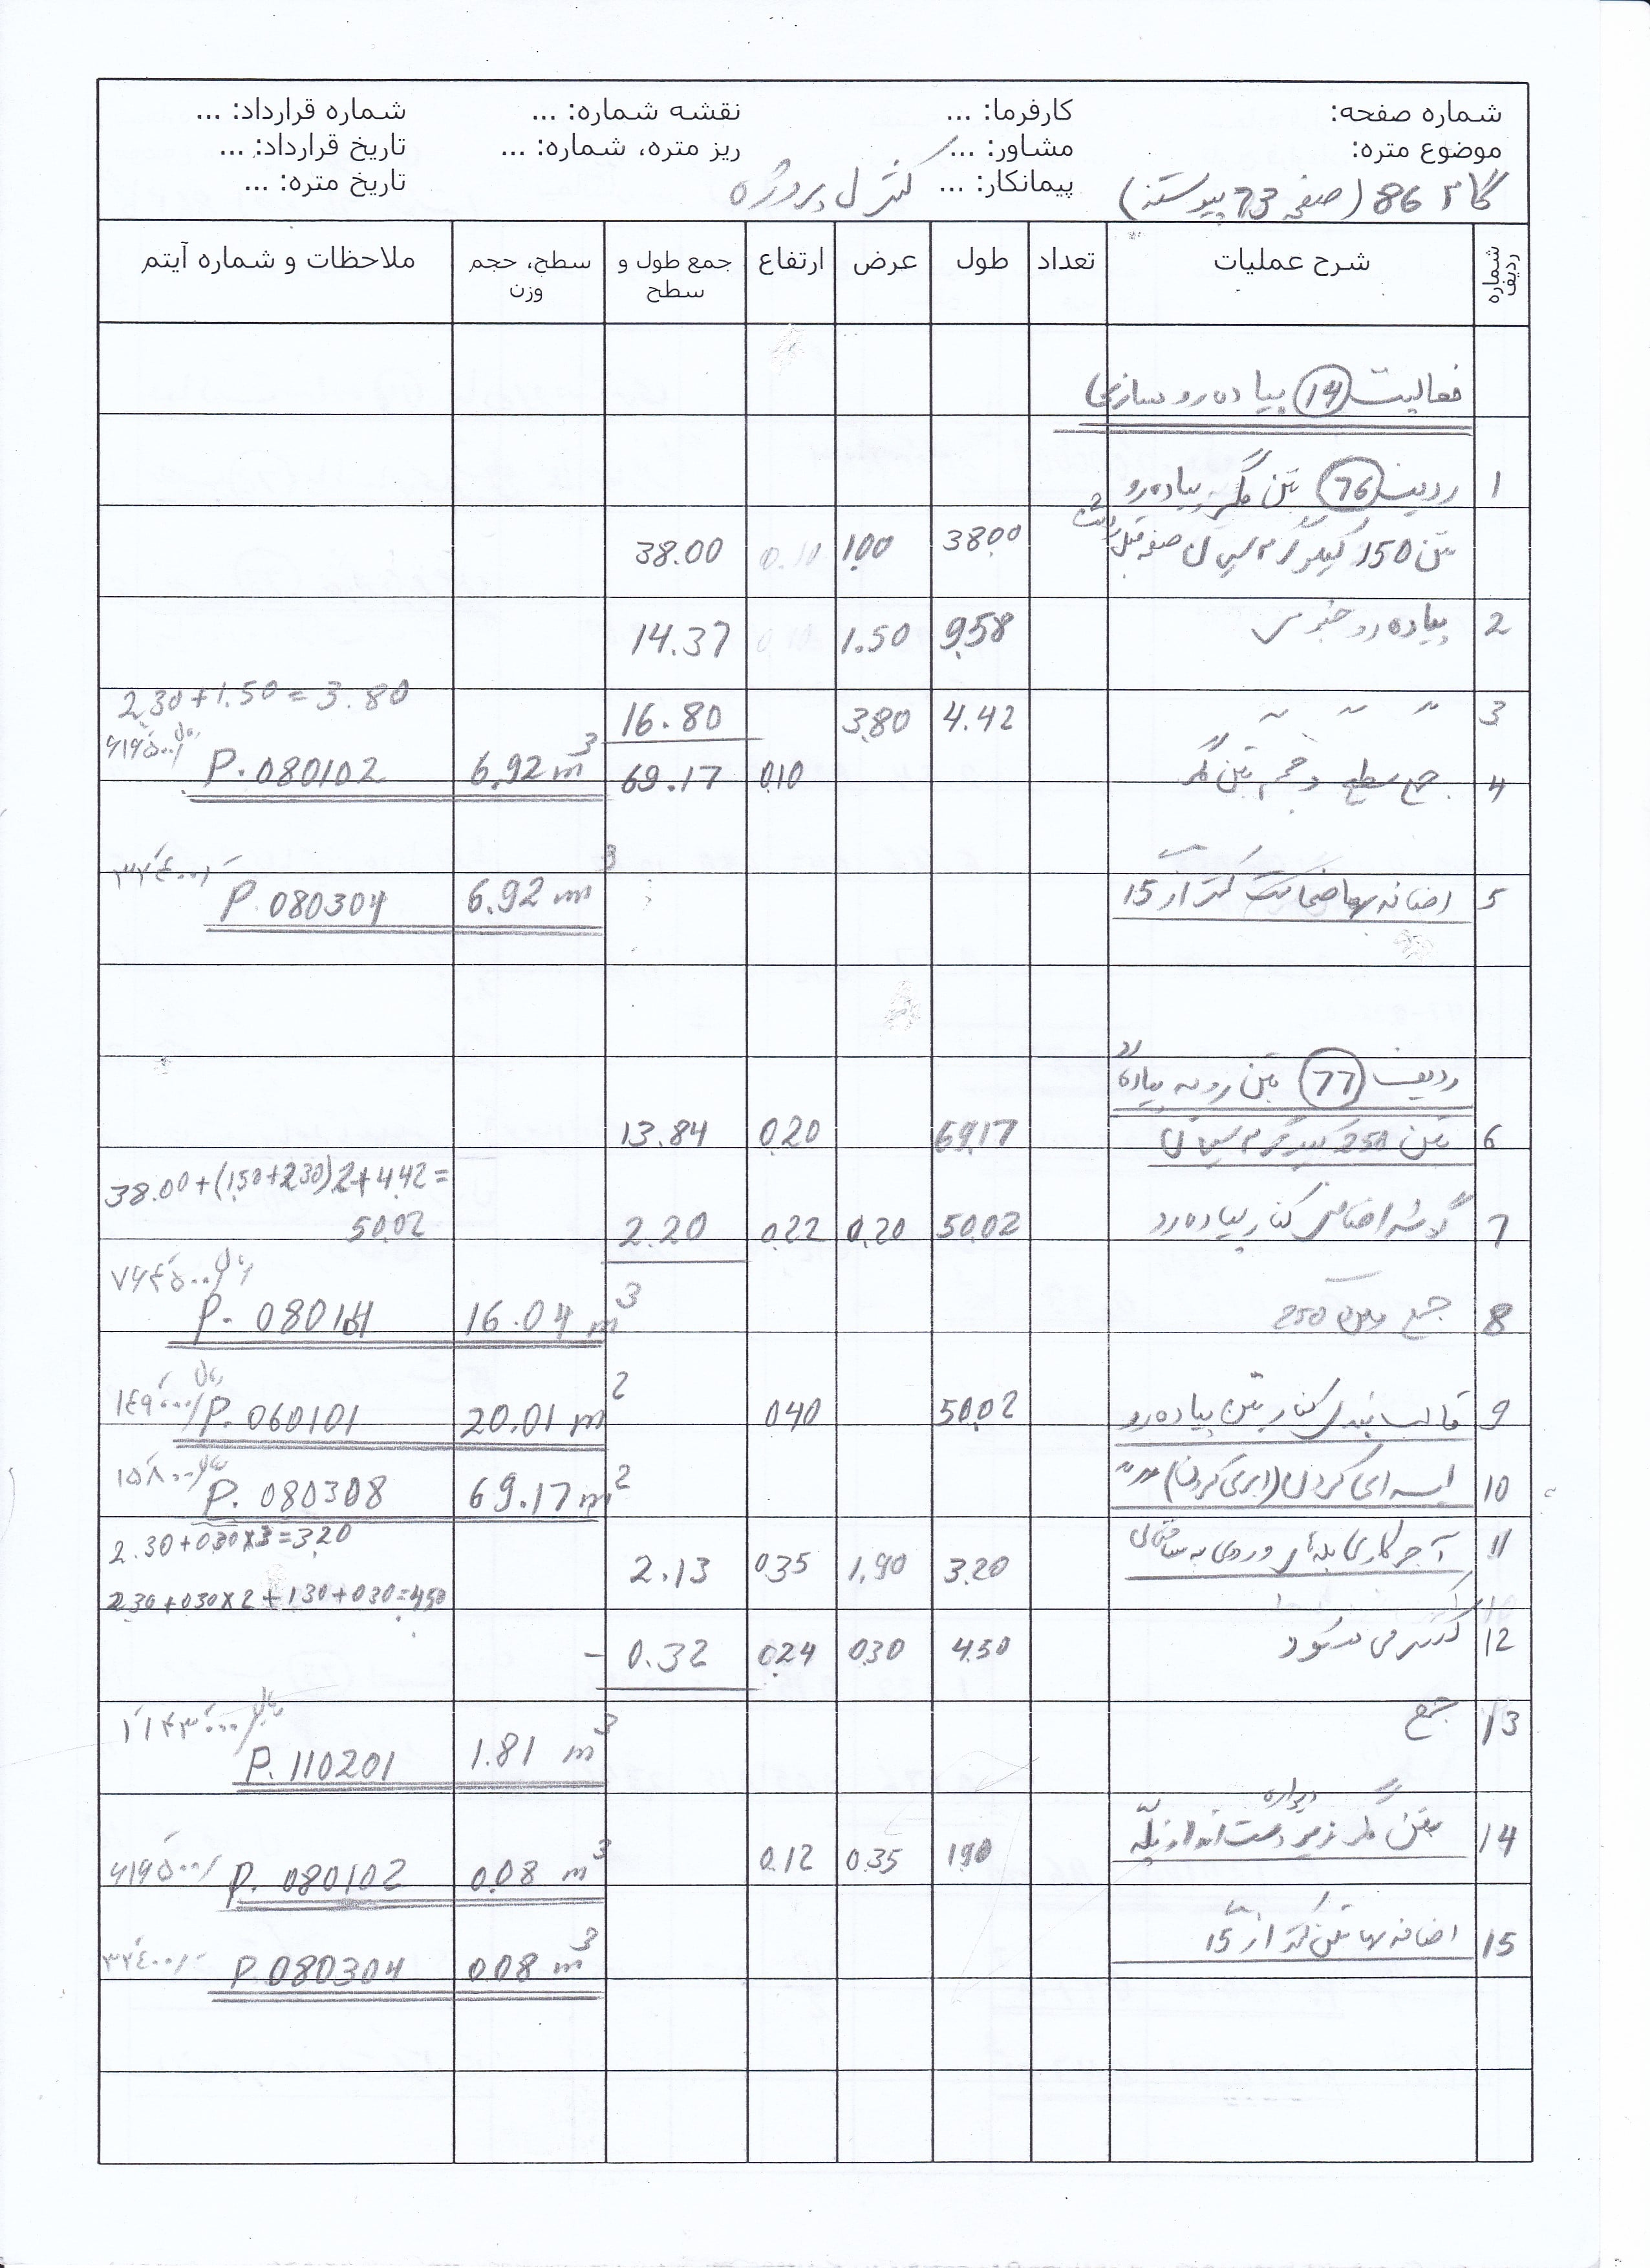 شماره صفحه: کارفرما: ... نقشه شماره: ... شماره قرارداد: ...
موضوع متره: مشاور: ... ریز متره، شماره: ... تاریخ قرارداد: ...
پیمانکار: ... تاریخ متره: ...
گام 86 (صفحه 73 پیوسته) کنترل پروژه
شماره ردیف شرح عملیات تعداد طول عرض ارتفاع جمع طول و سطح سطح، حجم وزن ملاحظات و شماره آیتم
فعالیت (14) پیاده رو سازی
1 ردیف (76) بتن مگر پیاده رو
بتن 150 کیلوگرم سیمان صفحه قبل 38.00 1.00 0.10 38.00
2 پیاده رو جنوبی 9.58 1.50 0.10 14.37
2.30+1.50=3.80
3 " " " 4.42 3.80 16.80
4 جمع سطح و حجم بتن مگر 0.10 69.17 6.92 m3 P. 080102
۶۱۹۵۰۰/ ریال
5 اضافه بها ضخامت کمتر از 15 6.92 m3 P. 080304
ردیف (77) بتن رویه پیاده رو
6 بتن 250 کیلوگرم سیمان 69.17 0.20 13.84
38.00+(1.50+2.30)2+4.42=
50.02
7 گوشه اضافی کنار پیاده رو 50.02 0.20 0.22 2.20
۷۶۴۵۰۰/ ریال
8 جمع بتن 250 16.04 m3 P. 080104
۱۴۹۰۰۰/ ریال
9 قالب بندی کنار بتن پیاده رو 50.02 0.40 20.01 m2 P. 060101
۱۵۸۰۰/ ریال
10 لیسه ای کردن (ابری کردن) " " 69.17 m2 P. 080308
2.30+0.30×3=3.20
11 آجرکاری پله های ورودی به ساختمان 3.20 1.90 0.35 2.13
2.30+0.30×2+1.30+0.30=4.50
12 کسر می شود 4.50 0.30 0.24 0.32 -
13 جمع 1.81 m3 P. 110201
۱۱۴۳۰۰۰/ ریال
14 بتن مگر زیر دیواره دست انداز پله 1.90 0.35 0.12 0.08 m3 P. 080102
۶۱۹۵۰۰/
15 اضافه بها بتن کمتر از 15 0.08 m3 P. 080304